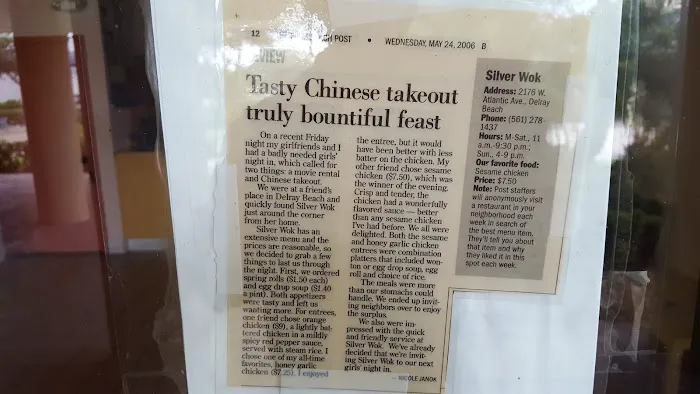 12
POST • WEDNESDAY, MAY 24, 2006 B
REVIEW
Tasty Chinese takeout
truly bountiful feast
On a recent Friday
night my girlfriends and I
had a badly needed girls'
night in, which called for
two things: a movie rental
and Chinese takeout.
We were at a friend's
place in Delray Beach and
quickly found Silver Wok
just around the corner
from her home.
Silver Wok has an
extensive menu and the
prices are reasonable, so
we decided to grab a few
things to last us through
the night. First, we ordered
spring rolls ($1.50 each)
and egg drop soup ($1.40
a pint). Both appetizers
were tasty and left us
wanting more. For entrees,
one friend chose orange
chicken ($9), a lightly bat-
tered chicken in a mildly
spicy red pepper sauce,
served with steam rice. I
chose one of my all-time
favorites, honey garlic
chicken ($7.25). I enjoyed
the entree, but it would
have been better with less
batter on the chicken. My
other friend chose sesame
chicken ($7.50), which was
the winner of the evening.
Crisp and tender, the
chicken had a wonderfully
flavored sauce — better
than any sesame chicken
I've had before. We all were
delighted. Both the sesame
and honey garlic chicken
entrees were combination
platters that included won-
ton or egg drop soup, egg
roll and choice of rice.
The meals were more
than our stomachs could
handle. We ended up invit-
ing neighbors over to enjoy
the surplus.
We also were im-
pressed with the quick
and friendly service at
Silver Wok. We've already
decided that we're invit-
ing Silver Wok to our next
girls' night in.
— NICOLE JANOK
Silver Wok
Address: 2176 W.
Atlantic Ave., Delray
Beach
Phone: (561) 278-
1437
Hours: M-Sat., 11
a.m.-9:30 p.m.;
Sun., 4-9 p.m.
Our favorite food:
Sesame chicken
Price: $7.50
Note: Post staffers
will anonymously visit
a restaurant in your
neighborhood each
week in search of
the best menu item.
They'll tell you about
that item and why
they liked it in this
spot each week.